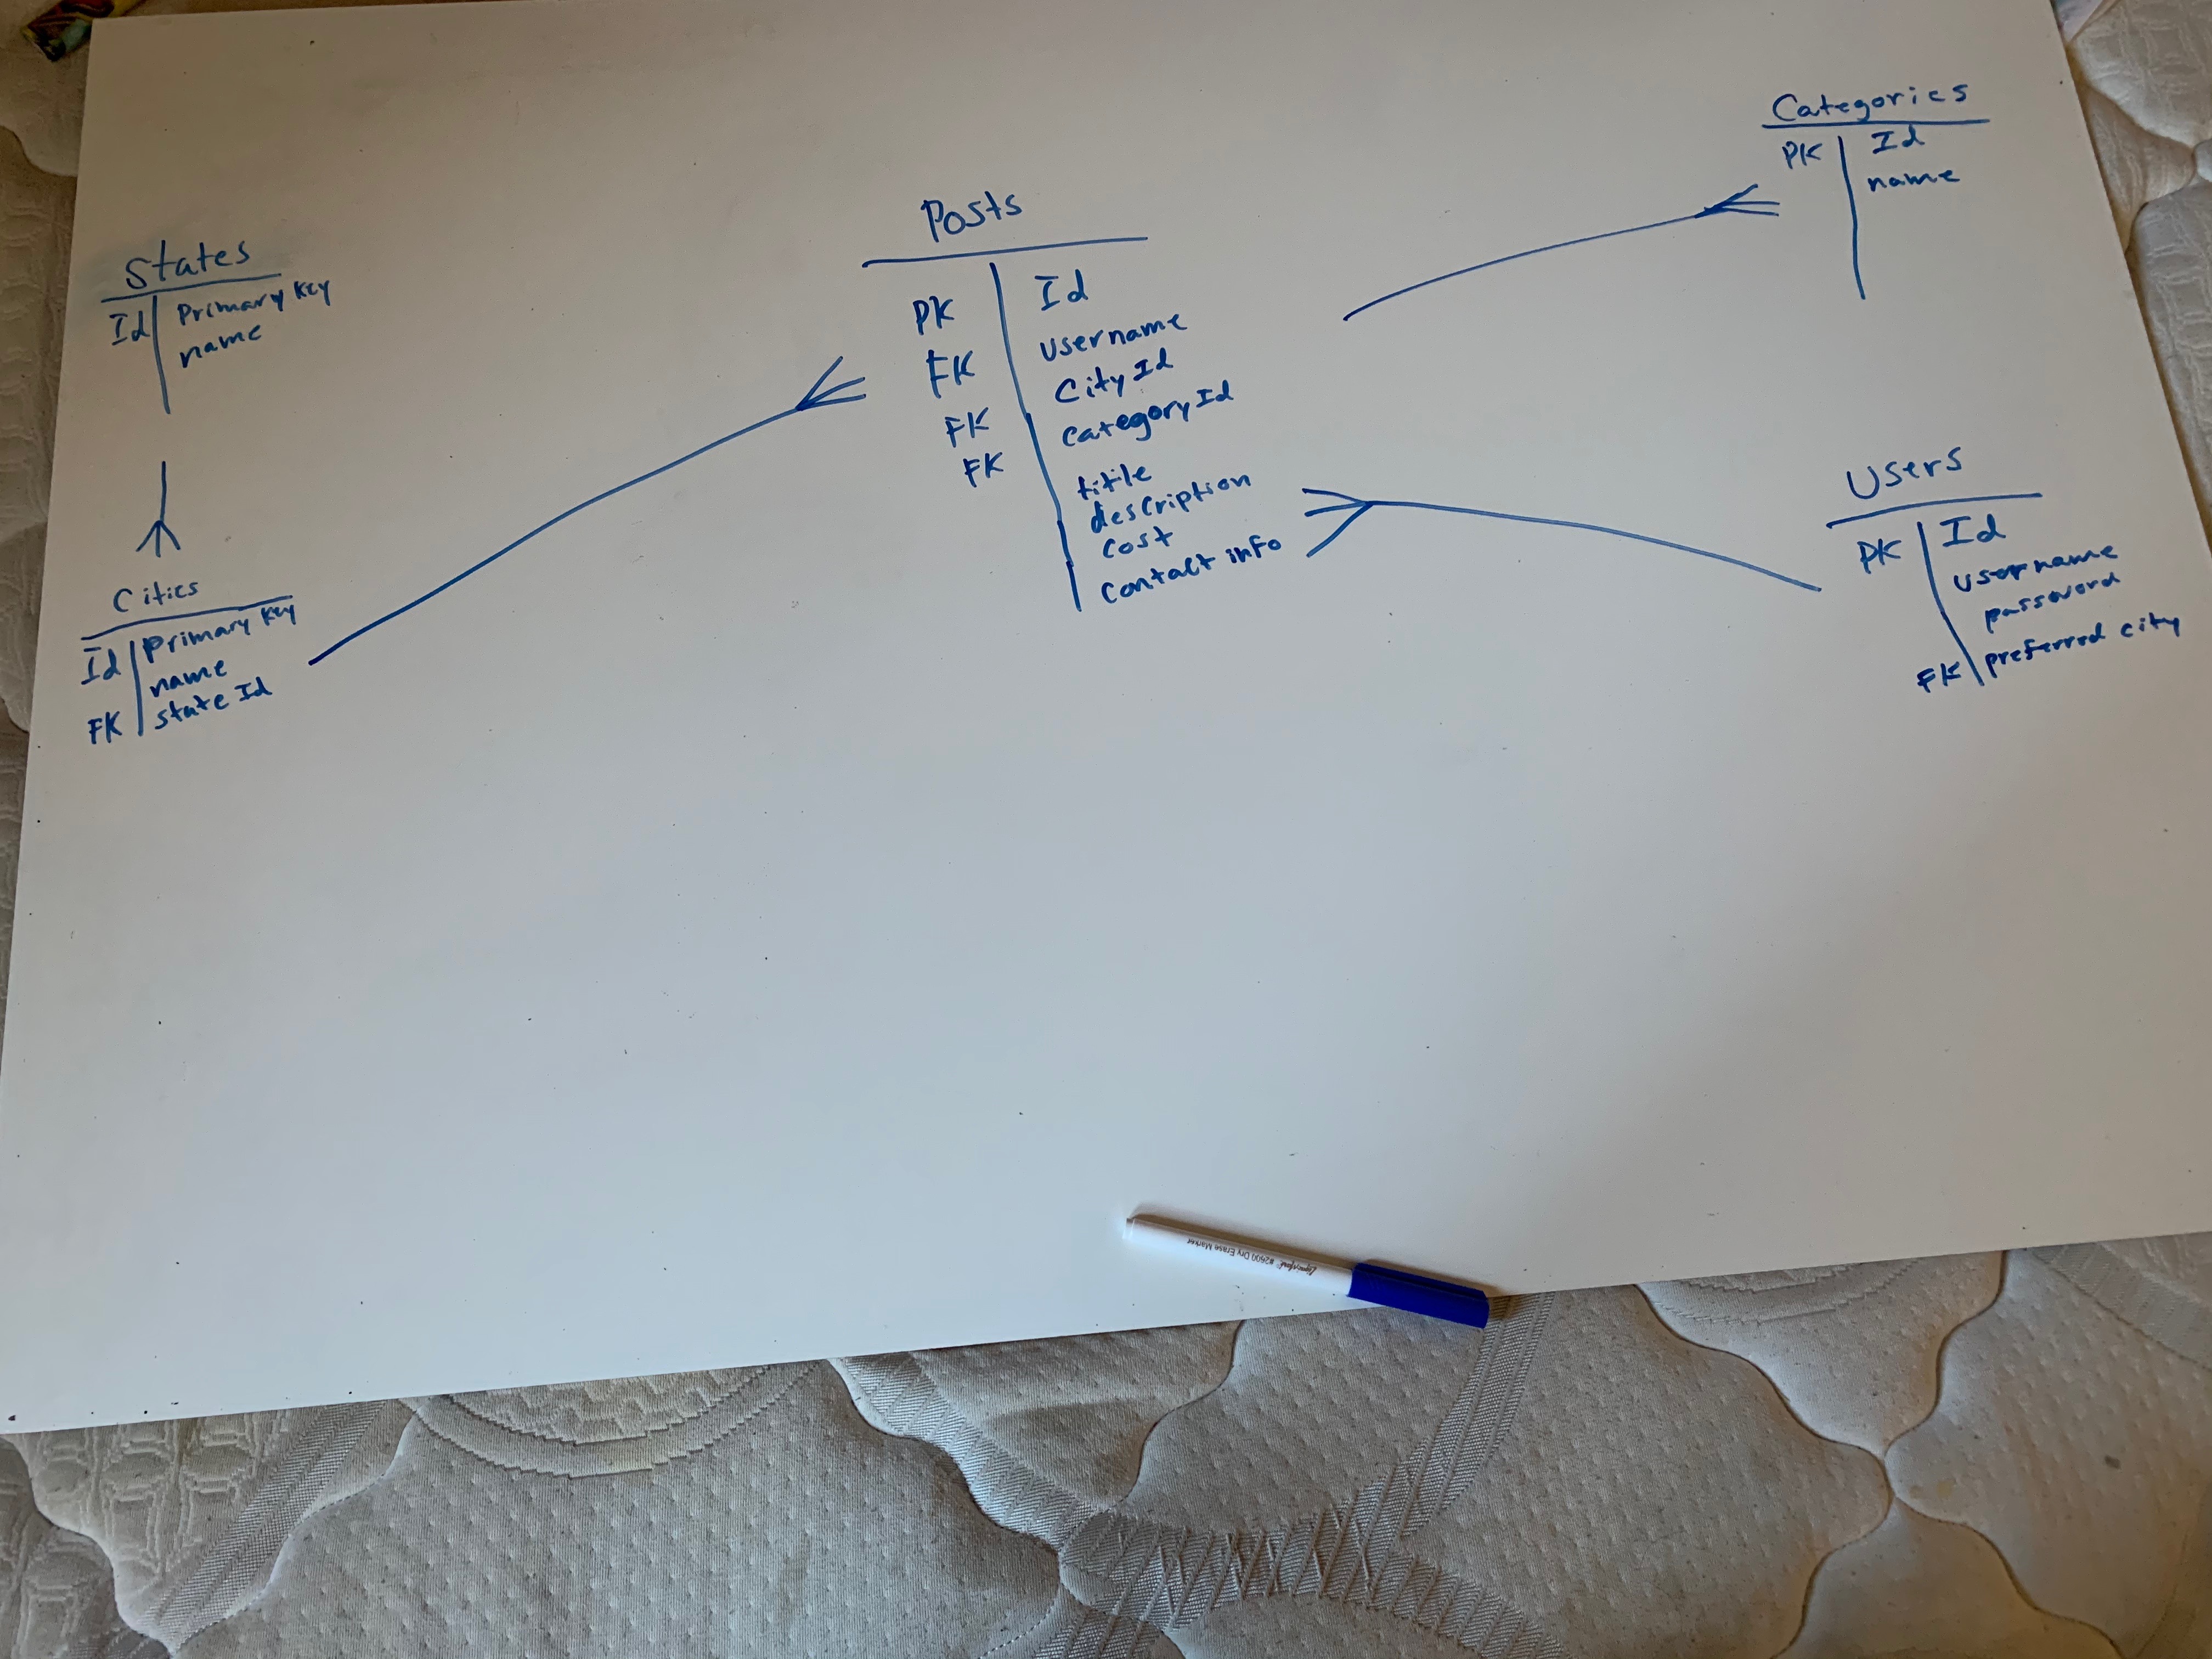 States
Id Primary Key
name
Cities
Id Primary Key
name
FK state Id
Posts
PK Id
FK username
FK City Id
FK category Id
title
description
cost
contact info
Categories
PK Id
name
Users
PK Id
username
password
FK preferred city
82600 Dry Erase Marker